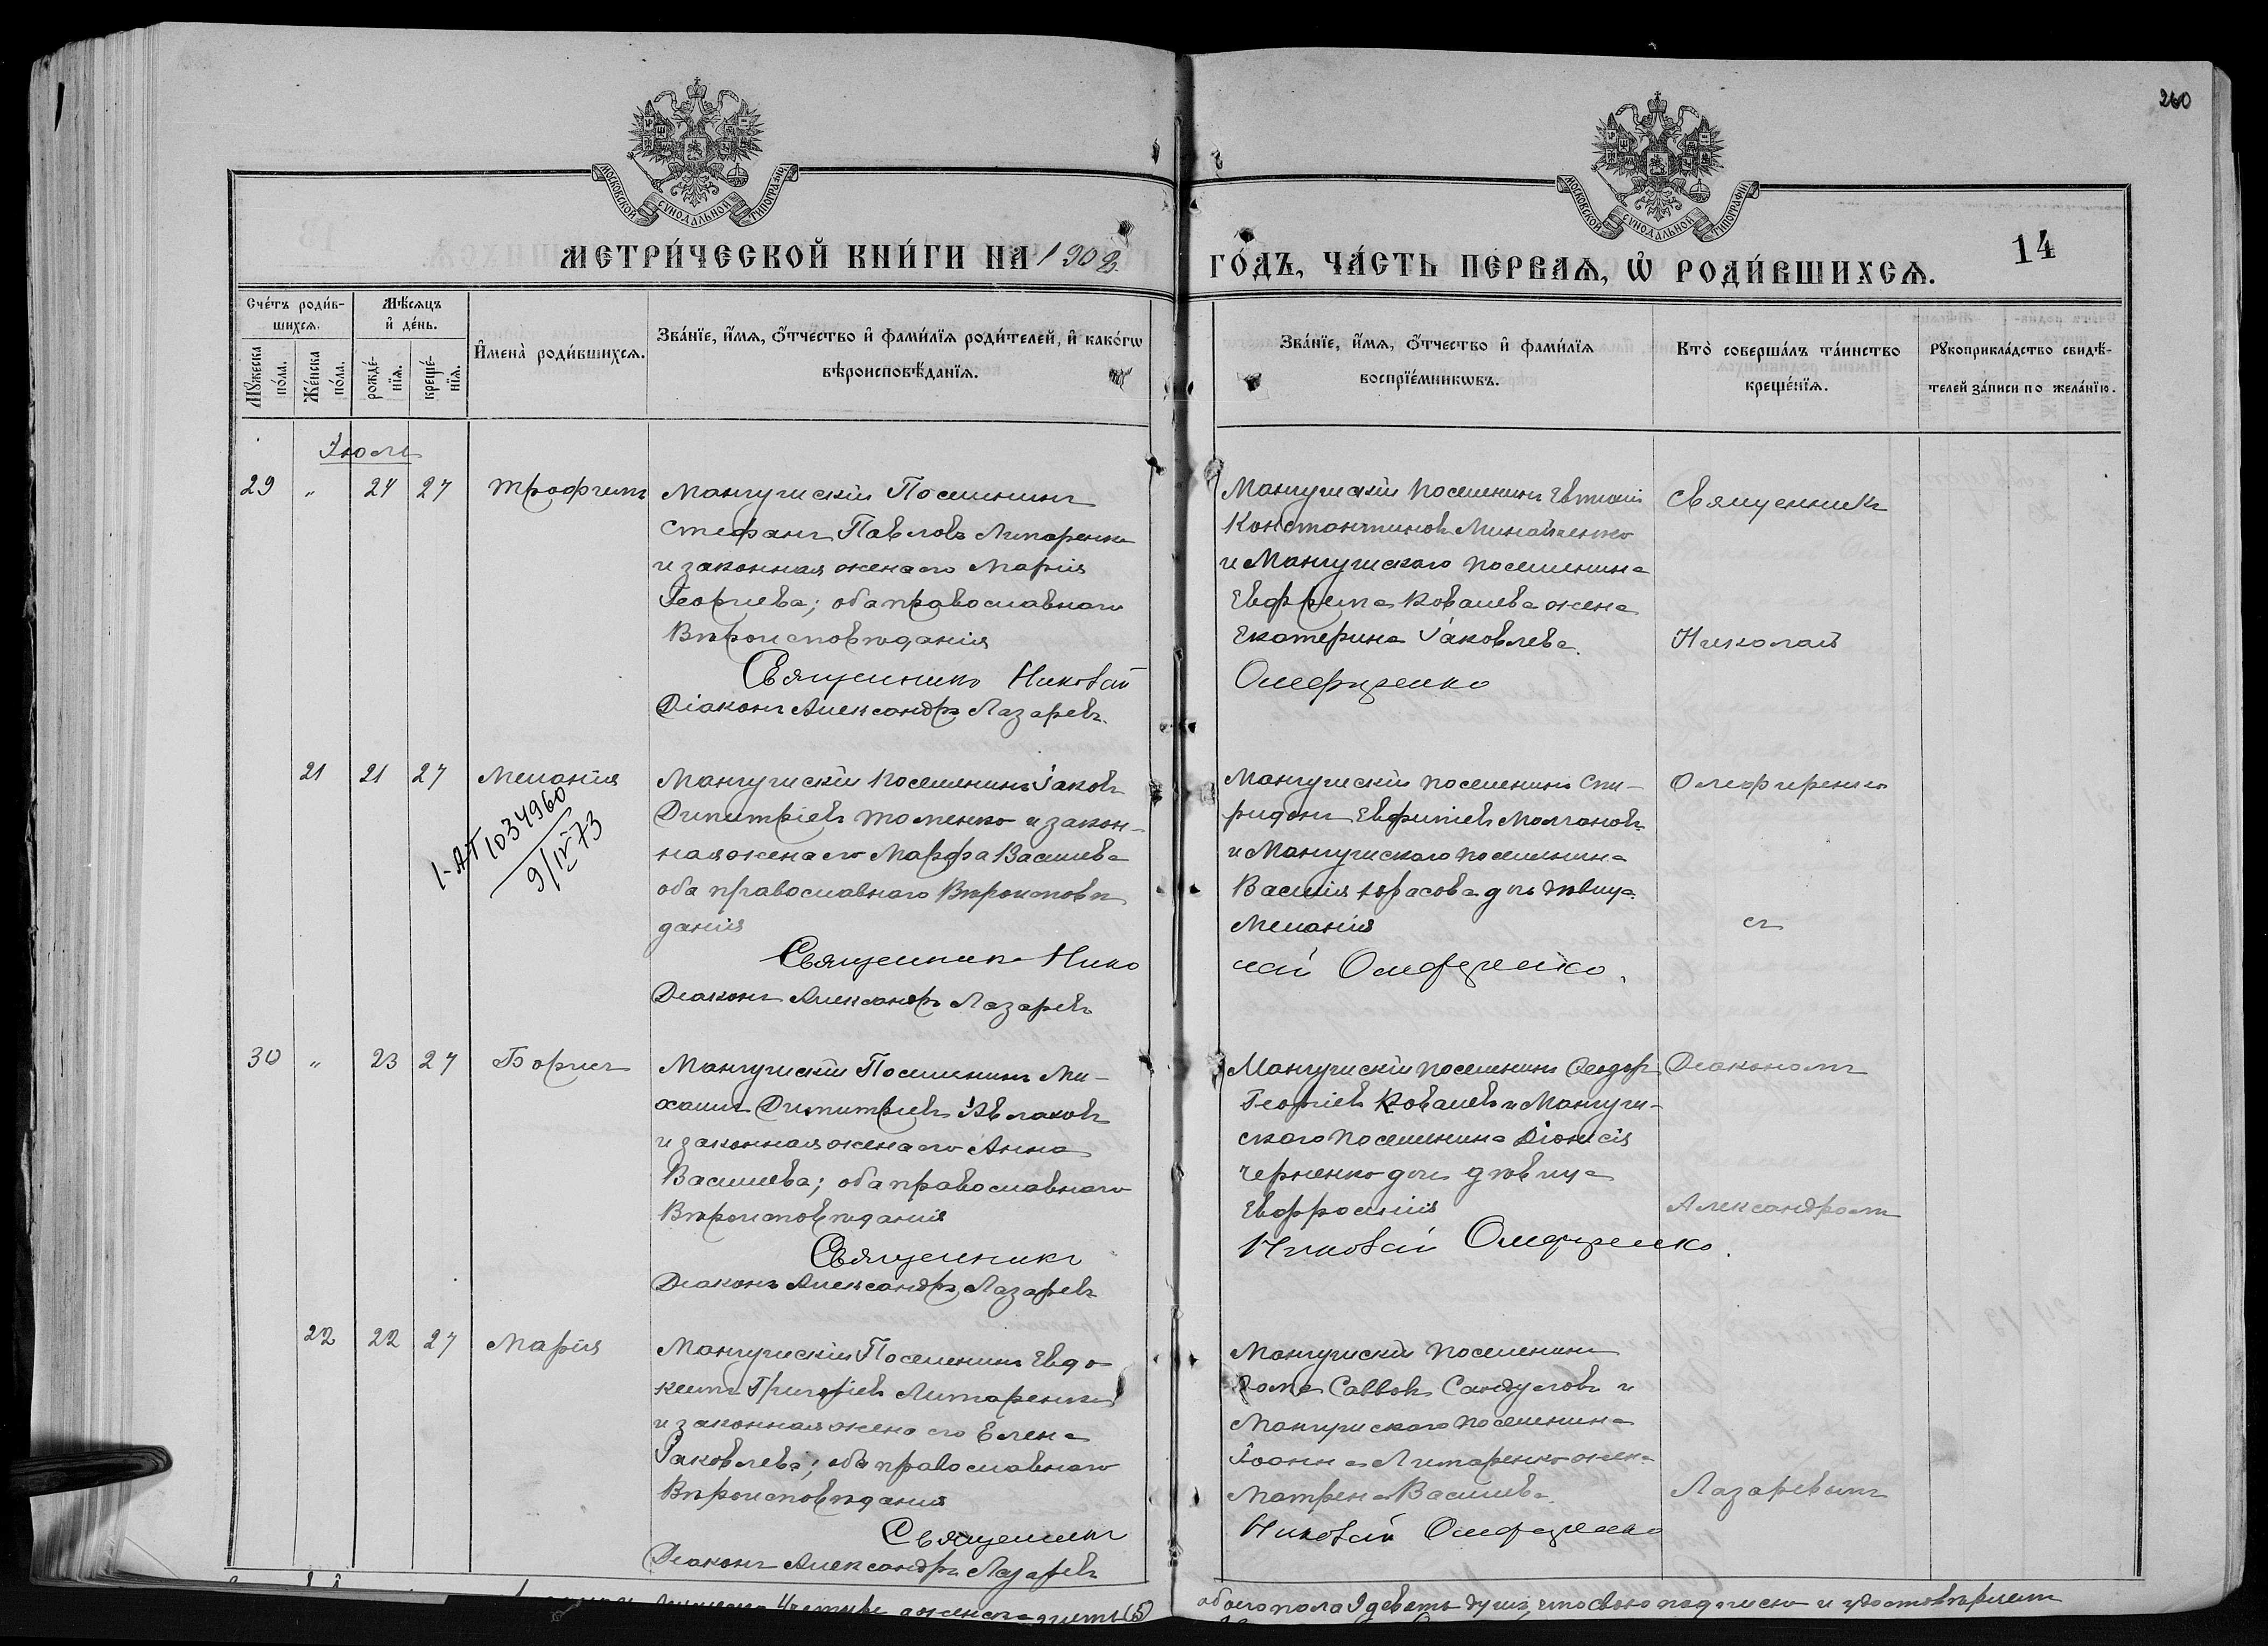 260
МОСКОВСКОЙ СУНОДАЛЬНОЙ ТИПОГРАФІИ
МОСКОВСКОЙ СУНОДАЛЬНОЙ ТИПОГРАФІИ
МЕТРИ́ЧЕСКОЙ КНИ́ГИ НА 1902
ГО́ДЪ, ЧА́СТЬ ПЕРВАѦ, Ѡ҆ РОДИ́ВШИХСѦ.
14
Сче́тъ роди́в-
шихсѧ.
Мѣ́сѧцъ
и҆ де́нь.
Мꙋжеска по́ла.
Же́нска по́ла.
рожде́-
нїѧ.
креще́-
нїѧ.
И҆мена̀ роди́вшихсѧ.
Зва́нїе, и҆́мѧ, ѻ҆́тчество и҆ фами́лїѧ роди́телей, и҆ како́гѡ
вѣроисповѣ́данїѧ.
Зва́нїе, и҆́мѧ, ѻ҆́тчество и҆ фами́лїѧ
воспрїе́мникѡвъ.
Кто̀ соверша́лъ та́инство
креще́нїѧ.
Рꙋкоприкла́дство свидѣ́-
телей за́писи по жела́нїю.
Іюль
29 " 24 27 Трофимъ
Мангушскій Поселянинъ
Стефанъ Павловъ Литаренко
и законная жена его Марія
Георгіева; оба православнаго
Вѣроисповѣданія
Священникъ Николай
Діаконъ Александръ Лазаревъ.
Мангушскій поселянинъ Евтихій
Константиновъ Минайленко
и Мангушскаго поселянина
Евфрема Ковалева жена
Екатерина Іаковлева.
Олефиренко
Священникъ
Николай
21 21 27 Меланія
1-АП 1034960
9/IV 73
Мангушскій поселянинъ Іаковъ
Димитріевъ Томенко и закон-
ная жена его Марфа Васильева
оба православнаго Вѣроисповѣ
данія
Священникъ Нико
Діаконъ Александръ Лазаревъ
Мангушскій поселянинъ Спи-
ридонъ Евфиміевъ Молчановъ
и Мангушскаго поселянина
Василія Юрасова дочь дѣвица
Меланія
лай Олефиренко.
Олефиренко
съ
30 " 23 27 Борисъ
Мангушскій Поселянинъ Ми-
хаилъ Димитріевъ Авлаховъ
и законная жена его Анна
Васильева; оба православнаго
Вѣроисповѣданія
Священникъ
Діаконъ Александръ Лазаревъ
Мангушскій поселянинъ Ѳеодоръ
Георгіевъ Ковалевъ и Мангуш-
скаго поселянина Діонисія
Черненко дочь дѣвица
Евфросинія
Николай Олефиренко.
Діакономъ
Александромъ
22 22 27 Марія
Мангушскій Поселянинъ Евдо-
кимъ Григоріевъ Литаренко
и законная жена его Елена
Іаковлева; оба православнаго
Вѣроисповѣданія
Священникъ
Діаконъ Александръ Лазаревъ
Мангушскій поселянинъ
Ѳома Саввовъ Сандуловъ и
Мангушскаго поселянина
Іоанна Литаренко жена
Матрена Васильева.
Николай Олефиренко
Лазаревымъ
четыре а женска пять (5)
обоего пола 9 девять душъ, что своею подписью и удостовѣряемъ